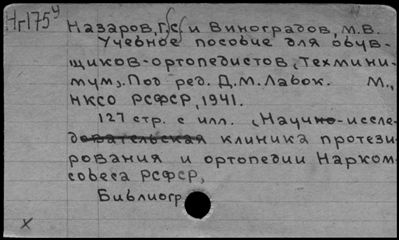 Нг175у
Назаров, Г.С. и Виноградов, М.В.
Учебное пособие для обув-
щиков-ортопедистов, (Техмини-
мум). Под ред. Д.М. Лабок. М.,
НКСО РСФСР, 1941.
127 стр. с илл. (Научно-иссле-
довательская клиника протези-
рования и ортопедии Нарком-
собеса РСФСР,
Библиогр
x